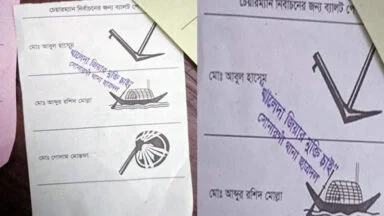 চেয়ারম্যান নির্বাচনের জন্য ব্যালট পে
মোঃ আবুল হাসেম
খালেদা জিয়ার মুক্তি চাই
সোনারগাঁ থানা ছাত্রদল
মোঃ আব্দুর রশিদ মোল্লা
মোঃ গোলাম মোস্তফা
চেয়ারম্যান নির্বাচনের জন্য ব্যালট
মোঃ আবুল হাসেম
"খালেদা জিয়ার মুক্তি চাই"
সোনারগাঁ থানা ছাত্রদল
মোঃ আব্দুর রশিদ মোল্লা